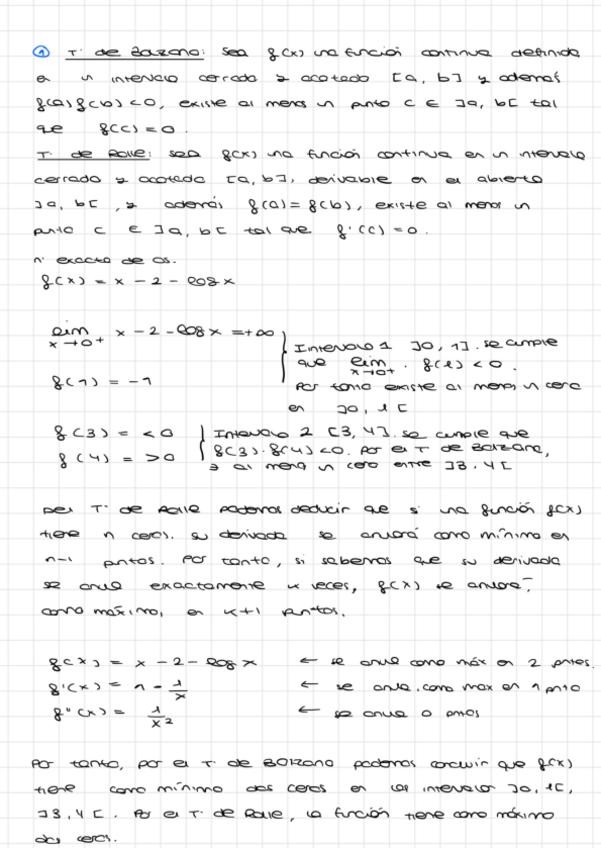 ① T. de Bolzano: sea f(x) una función continua definida
en un intervalo cerrado y acotado [a, b] y además
f(a) f(b) < 0, existe al menos un punto c ∈ ]a, b[ tal
que f(c) = 0.
T. de Rolle: sea f(x) una función continua en un intervalo
cerrado y acotado [a, b], derivable en el abierto
]a, b[, y además f(a) = f(b), existe al menos un
punto c ∈ ]a, b[ tal que f'(c) = 0.
nº exacto de os.
f(x) = x - 2 - log x
lim x→0⁺ x - 2 - log x = +∞
f(1) = -1
Intervalo 1 ]0, 1]. se cumple
que lim x→0⁺ · f(1) < 0.
Por tanto existe al menos un cero
en ]0, 1[
f(3) = < 0
f(4) = > 0
Intervalo 2 [3, 4]. se cumple que
f(3) · f(4) < 0. Por el T de Bolzano,
∃ al menos un cero entre ]3, 4[
Del T. de Rolle podemos deducir que si una función f(x)
tiene n ceros. su derivada se anulará como mínimo en
n-1 puntos. Por tanto, si sabemos que su derivada
se anula exactamente k veces, f(x) se anulará,
como máximo, en k+1 puntos.
f(x) = x - 2 - log x ← se anula como máx en 2 puntos.
f'(x) = 1 - 1/x ← se anula como max en 1 punto
f''(x) = 1/x² ← se anula 0 puntos
Por tanto, por el T. de Bolzano podemos concluir que f(x)
tiene como mínimo dos ceros en los intervalos ]0, 1[,
]3, 4[. Por el T. de Rolle, la función tiene como máximo
dos ceros.